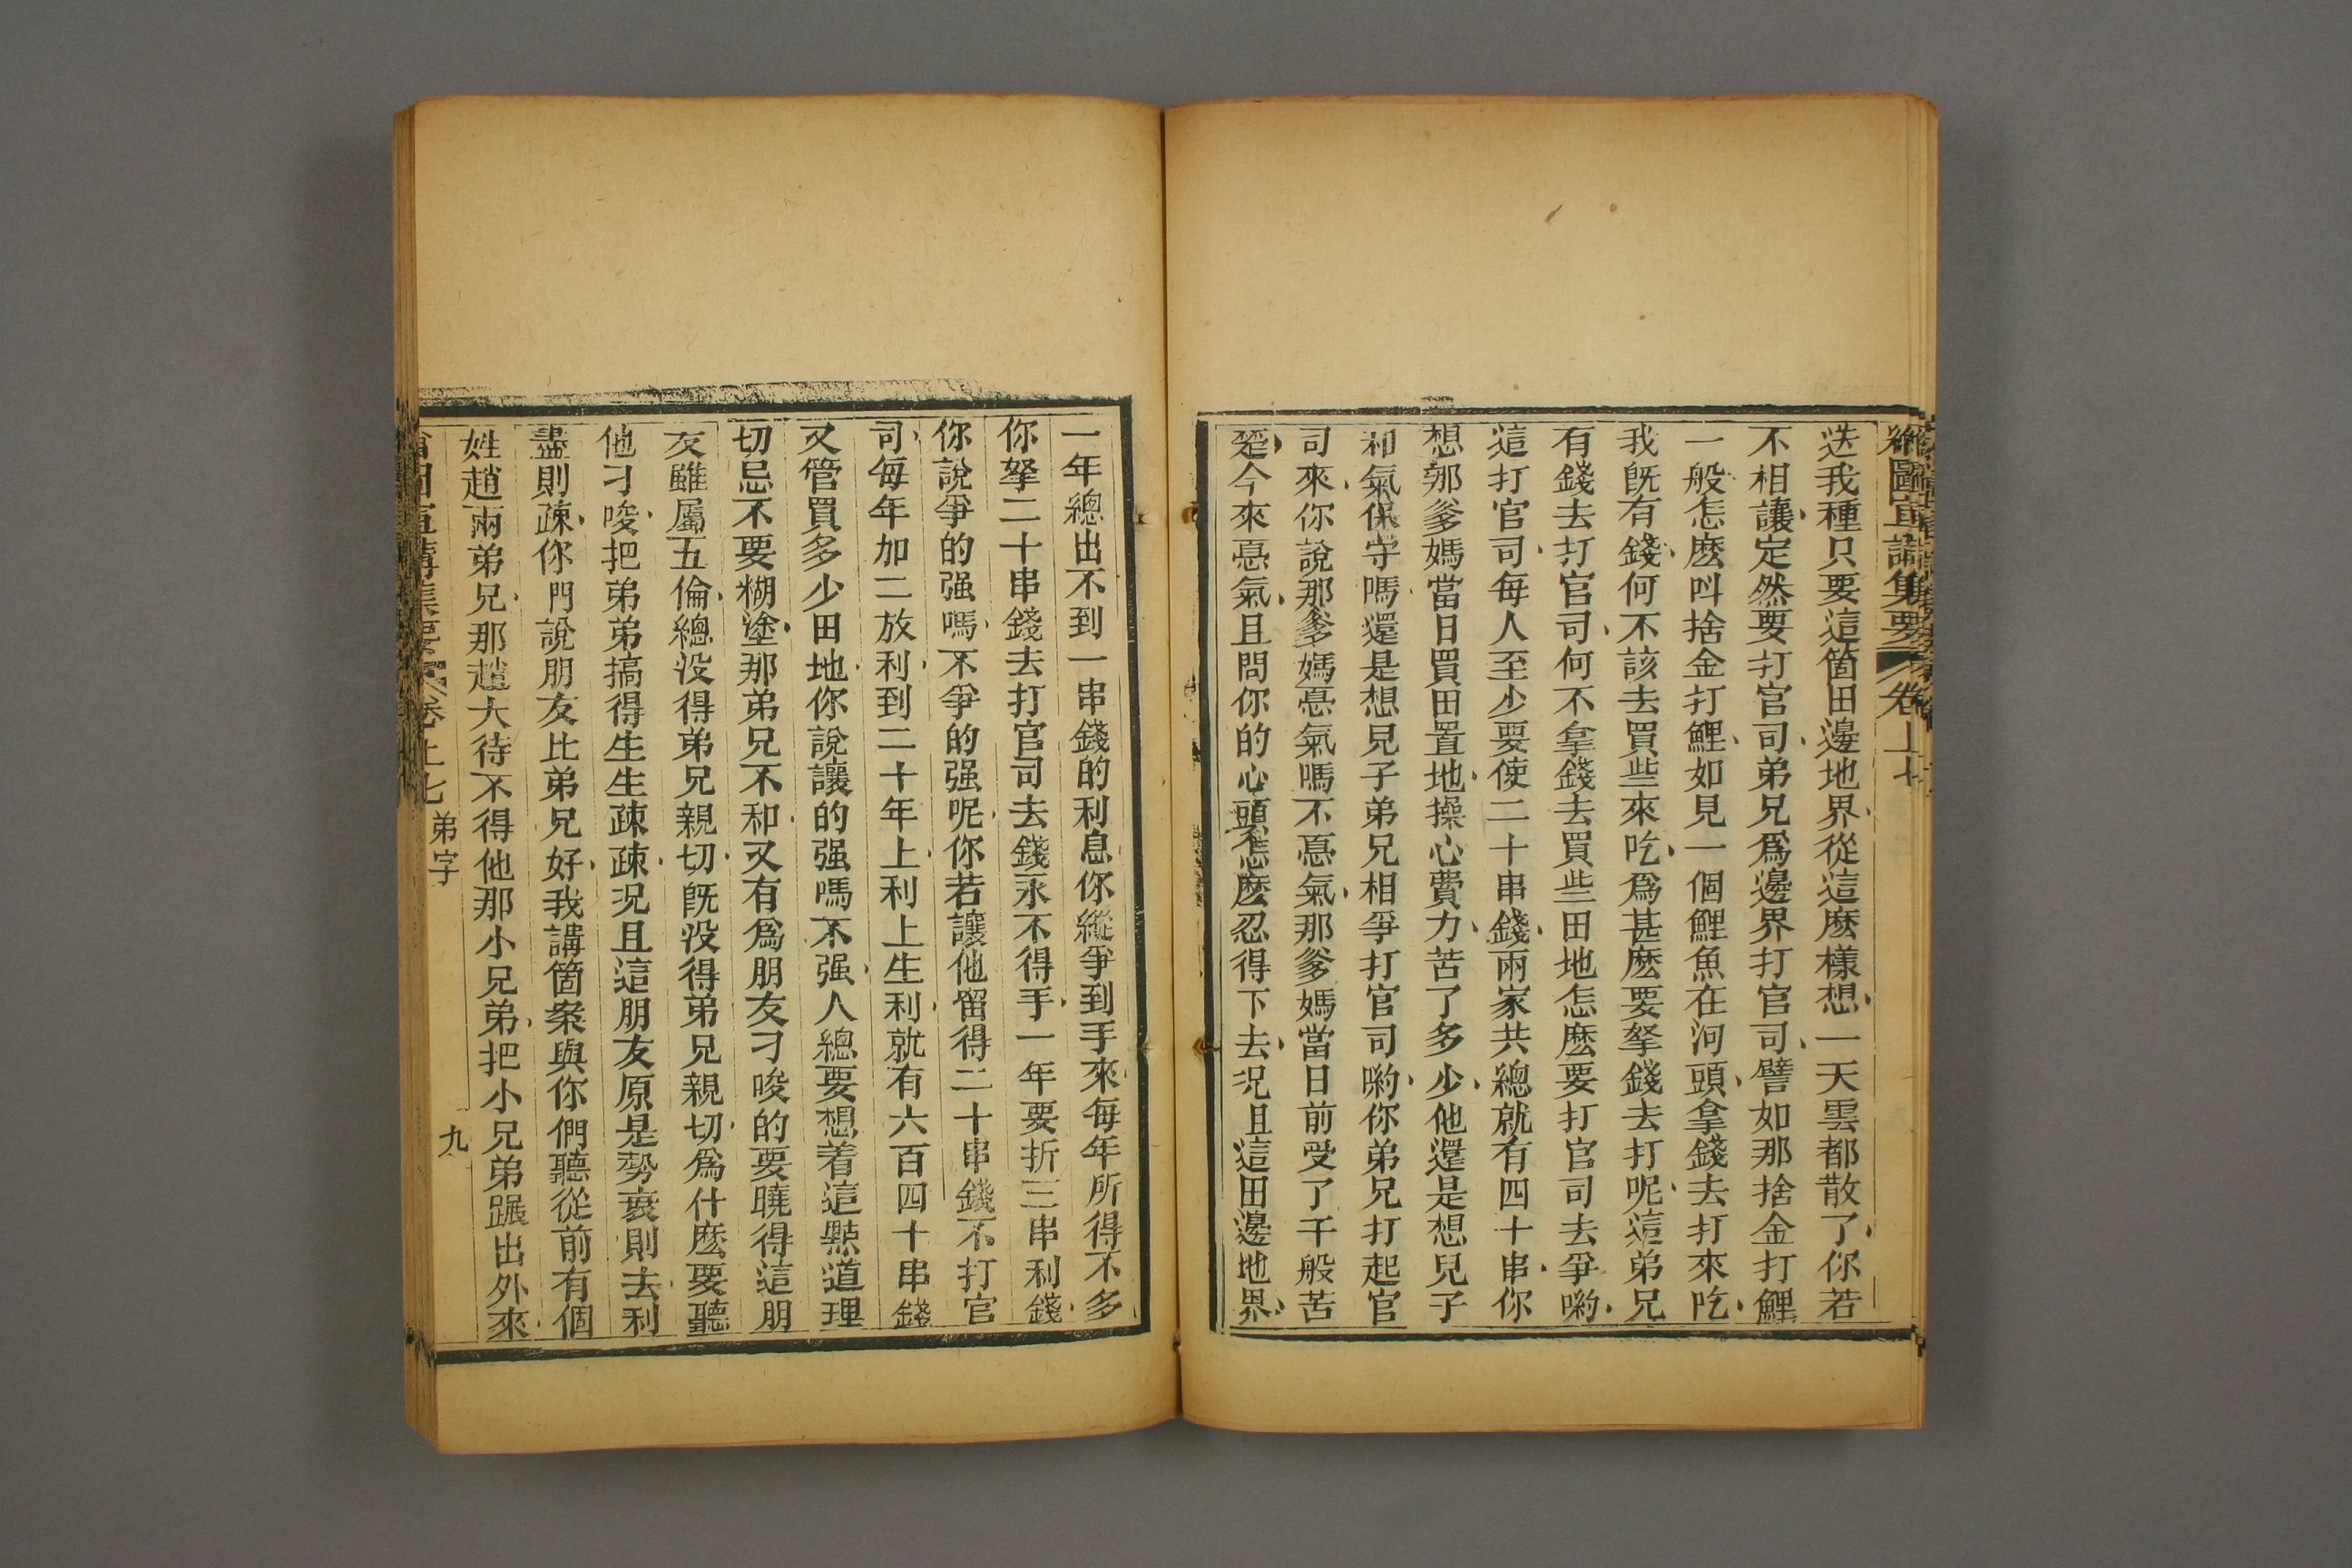 繪圖宣講集要 卷上七
送我種只要這箇田邊地界從這麽樣想一天雲都散了你若
不相讓定然要打官司弟兄爲邊界打官司譬如那捨金打鯉
一般怎麽呌捨金打鯉如見一個鯉魚在河頭拿錢去打來吃
我旣有錢何不該去買些來吃爲甚麽要拏錢去打呢這弟兄
有錢去打官司何不拿錢去買些田地怎麽要打官司去爭喲
這打官司每人至少要使二十串錢兩家共總就有四十串你
想那爹媽當日買田置地操心費力苦了多少他還是想兒子
和氣保守嗎還是想兄子弟兄相爭打官司喲你弟兄打起官
司來你說那爹媽慪氣嗎不慪氣那爹媽當日前受了千般苦
楚今來慪氣且問你的心頭怎麽忍得下去况且這田邊地界
一年總出不到一串錢的利息你縱爭到手來每年所得不多
你拏二十串錢去打官司去錢永不得手一年要折三串利錢
你說爭的强嗎不爭的强呢你若讓他留得二十串錢不打官
司每年加二放利到二十年上利上生利就有六百四十串錢
又管買多少田地你說讓的强嗎不强人總要想着這㸃道理
切忌不要糊塗那弟兄不和又有爲朋友刁唆的要曉得這朋
友雖屬五倫總没得弟兄親切旣没得弟兄親切爲什麽要聽
他刁唆把弟弟搞得生生疎疎况且這朋友原是勢衰則去利
盡則疎你門說朋友比弟兄好我講箇案與你們聽從前有個
姓趙兩弟兄那趙大待不得他那小兄弟把小兄弟蹍出外來
卷上七 弟字 九